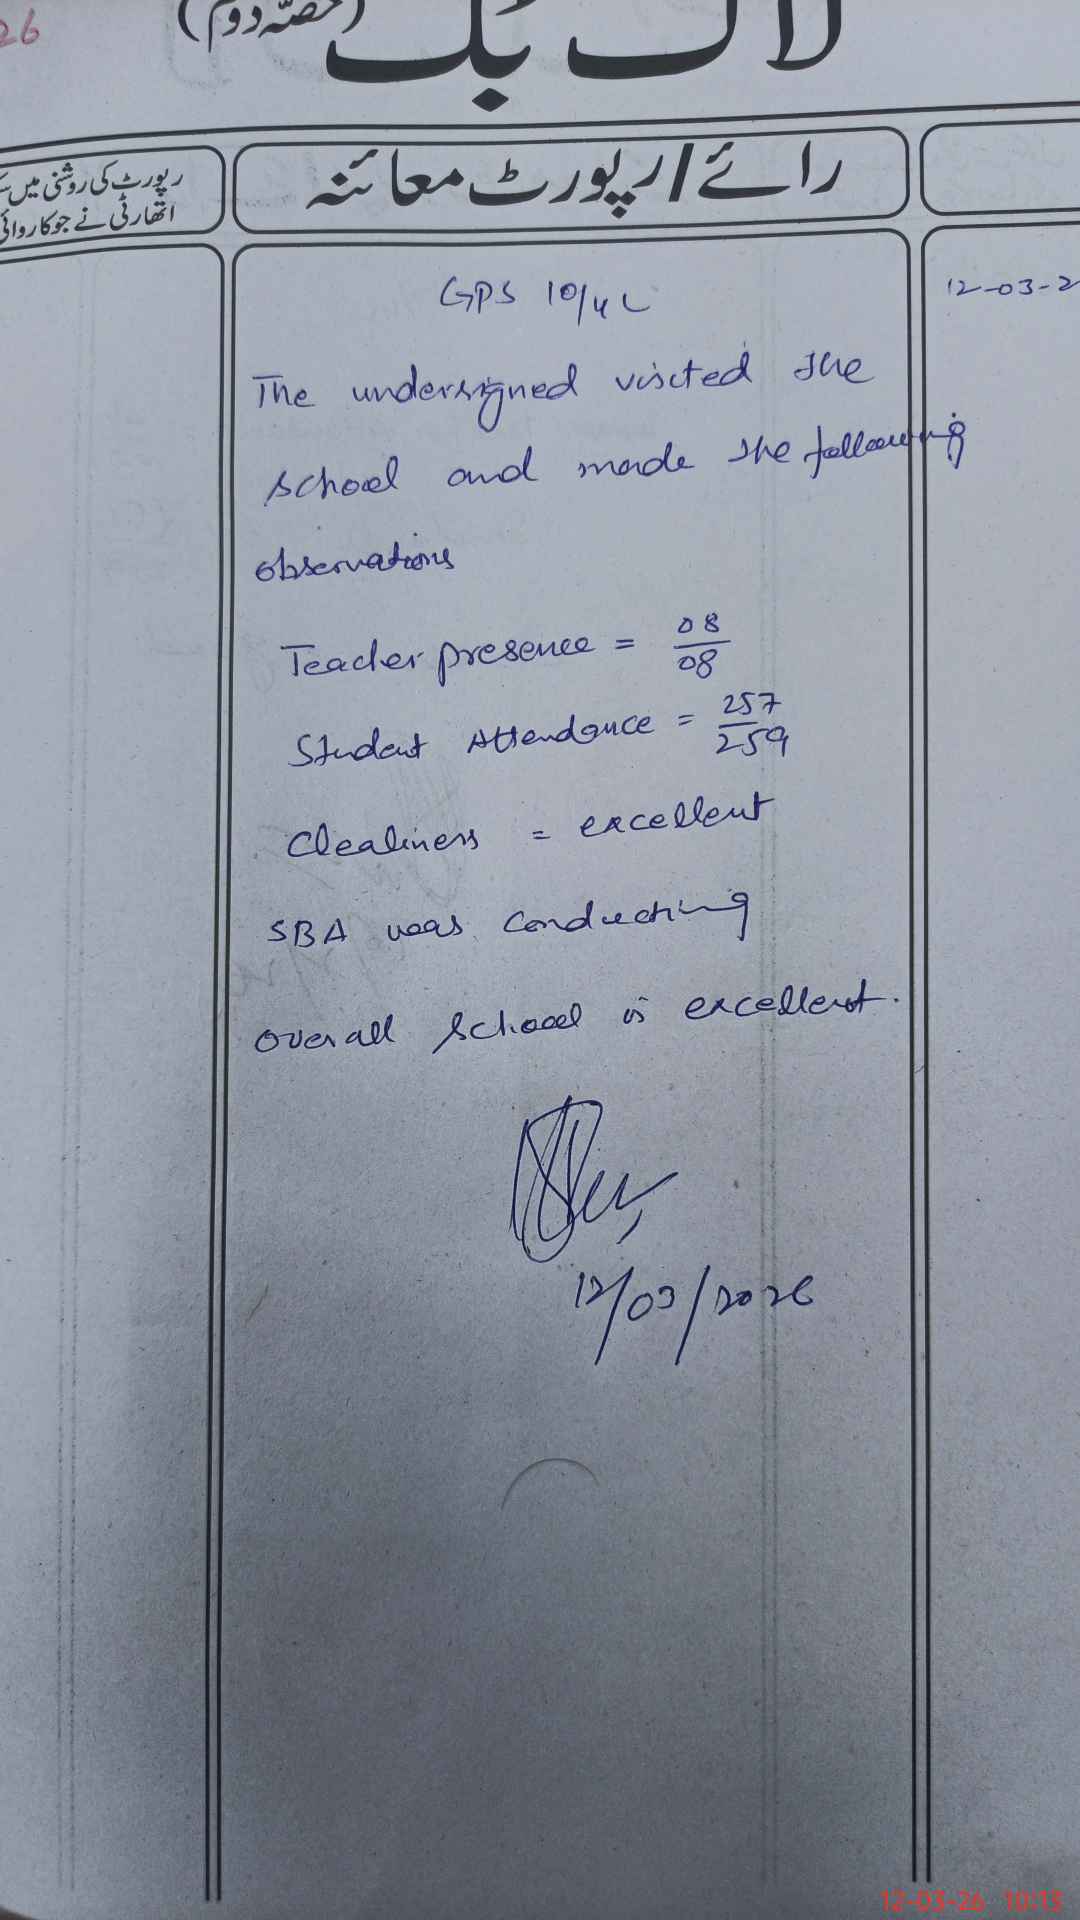 26
لاگ بک (حصّہ دوم)
رائے/رپورٹ معائنہ
رپورٹ کی روشنی میں
اتھارٹی نے جو کاروائی
12-03-2
GPS 10/4L
The undersigned visited the
school and made the following
observations
Teacher presence = 08/08
Student Attendance = 257/259
Clealiness = excellent
SBA was conducting
overall school is excellent.
12/03/2026
12-03-26 10:13